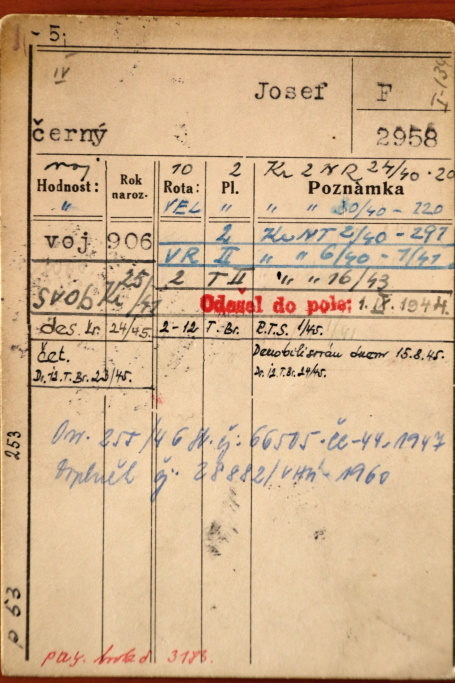 - 5.
IV
I-134
Josef F
černý 2958
voj 10 2 Kr 2 NR 24/40 - 20
Hodnost: Rok naroz. Rota: Pl. Poznámka
" VEL " " " 30/40 - 220
voj 906 2 Kr NT 2/40 - 291
VR II " " 6/40 - 7/41
svob Kr 25/41 2 T II " " 16/43
Odešel do pole: 1. IX. 1944.
des. Kr. 24/45. 2-12 T. Br. P.T.S. 1/45.
čet. Demobilisován dnem 15.8.45.
Dr. 12. T. Br. 23/45. Dr. 12. T. Br. 24/45.
253
28882 1960
p 53
3183.